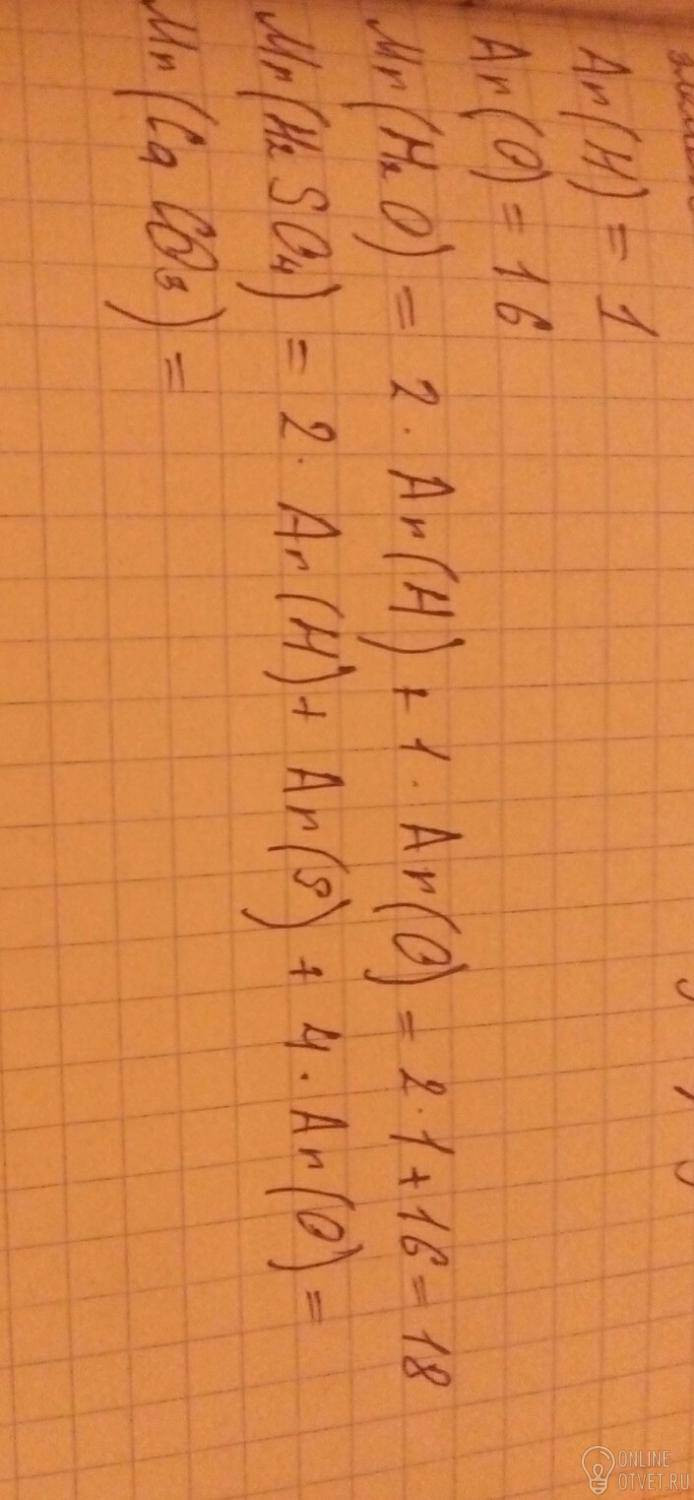 Ar(H) = 1
Ar(O) = 16
Mr(H₂O) = 2 · Ar(H) + 1 · Ar(O) = 2 · 1 + 16 = 18
Mr(H₂SO₄) = 2 · Ar(H) + Ar(S) + 4 · Ar(O) =
Mr(CaCO₃) =
ONLINE
OTVET.RU